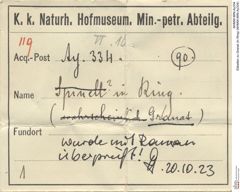 K. k. Naturh. Hofmuseum. Min.-petr. Abteilg.
119
Acq.-Post Ay. 334. 90
Name Spinell² in Ring.
(wahrscheinlich Granat)
Fundort
wurde mit Raman
überprüft!
20.10.23
1